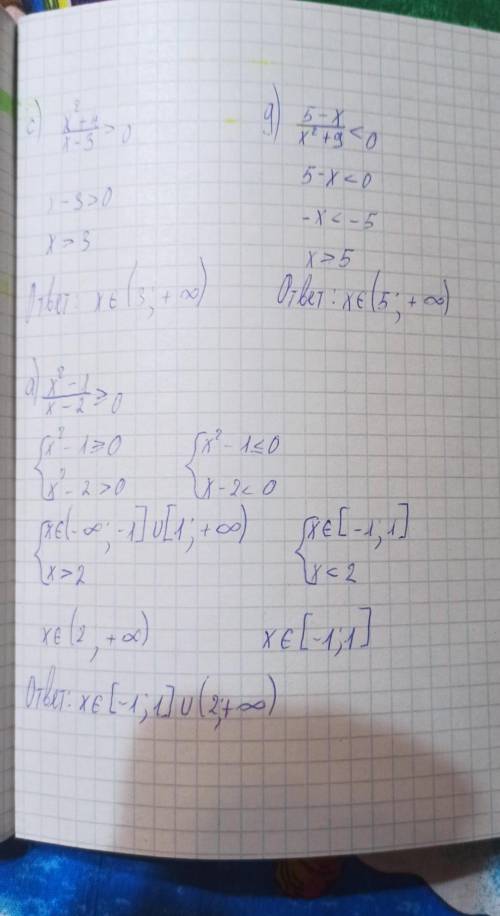 с) x²+4/x-3 > 0
-3>0
x > 3
Ответ: x∈(3; +∞)
g) 5-x/x²+9 < 0
5-x<0
-x<-5
x>5
Ответ: x∈(5; +∞)
а) x²-1/x-2 ≥ 0
{x²-1≥0 {x²-1≤0
{x²-2>0 {x-2<0
{x∈(-∞; -1]∪[1; +∞) {x∈[-1; 1]
{x>2 {x<2
x∈(2, +∞) x∈[-1; 1]
Ответ: x∈[-1; 1]∪(2;+∞)